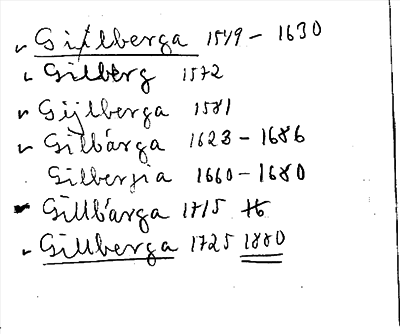 Gitlberga 1549 - 1630
Gilberg 1572
Gijlberga 1581
Gilbårga 1623 - 1686
Gilbersia 1660 - 1680
Gillbårga 1715
Gillberga 1725 1880